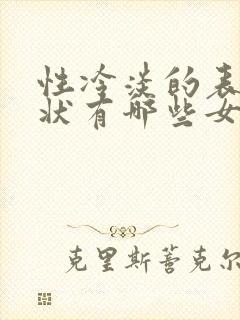 性冷淡的表
状有哪些女
克里斯蒂克尔